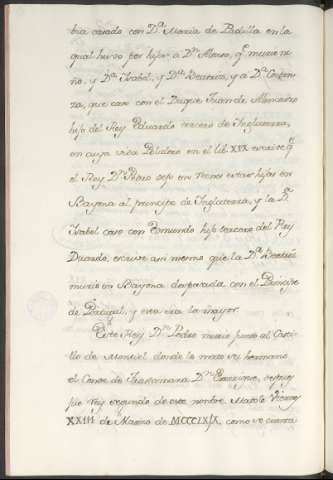 bia casado con D.ª Maria de Padilla en la
qual huvo por hijos a D.ⁿ Alonso, q.ᵉ murio ni-
ño, y D.ª Isabel, y D.ª Beatriz, y a D.ª Costan-
za, que caso con el Duque Juan de Alencastro
hijo del Rey Eduardo tercero de Inglaterra,
en cuya vida Polidoro en el lib. XIX escrive q.ᵉ
el Rey D.ⁿ Pedro dejo en rrenes estas hijas en
Bayona al principe de Inglaterra, y la D.ª
Isabel caso con Edmundo hijo tercero del Rey
Duardo, escrive asi mesmo que la D.ª Beatriz
murio en Bayona desposada con el Principe
de Portugal, y esta era la mayor.
Este Rey D.ⁿ Pedro murio junto al Casti-
llo de Montiel donde lo mato su hermano
el Conde de Trastamara D.ⁿ Enrrique, despues
fue Rey segundo de este nombre. Matole Viernes
XXIII de Marzo de MCCCLXIX, como se cuenta